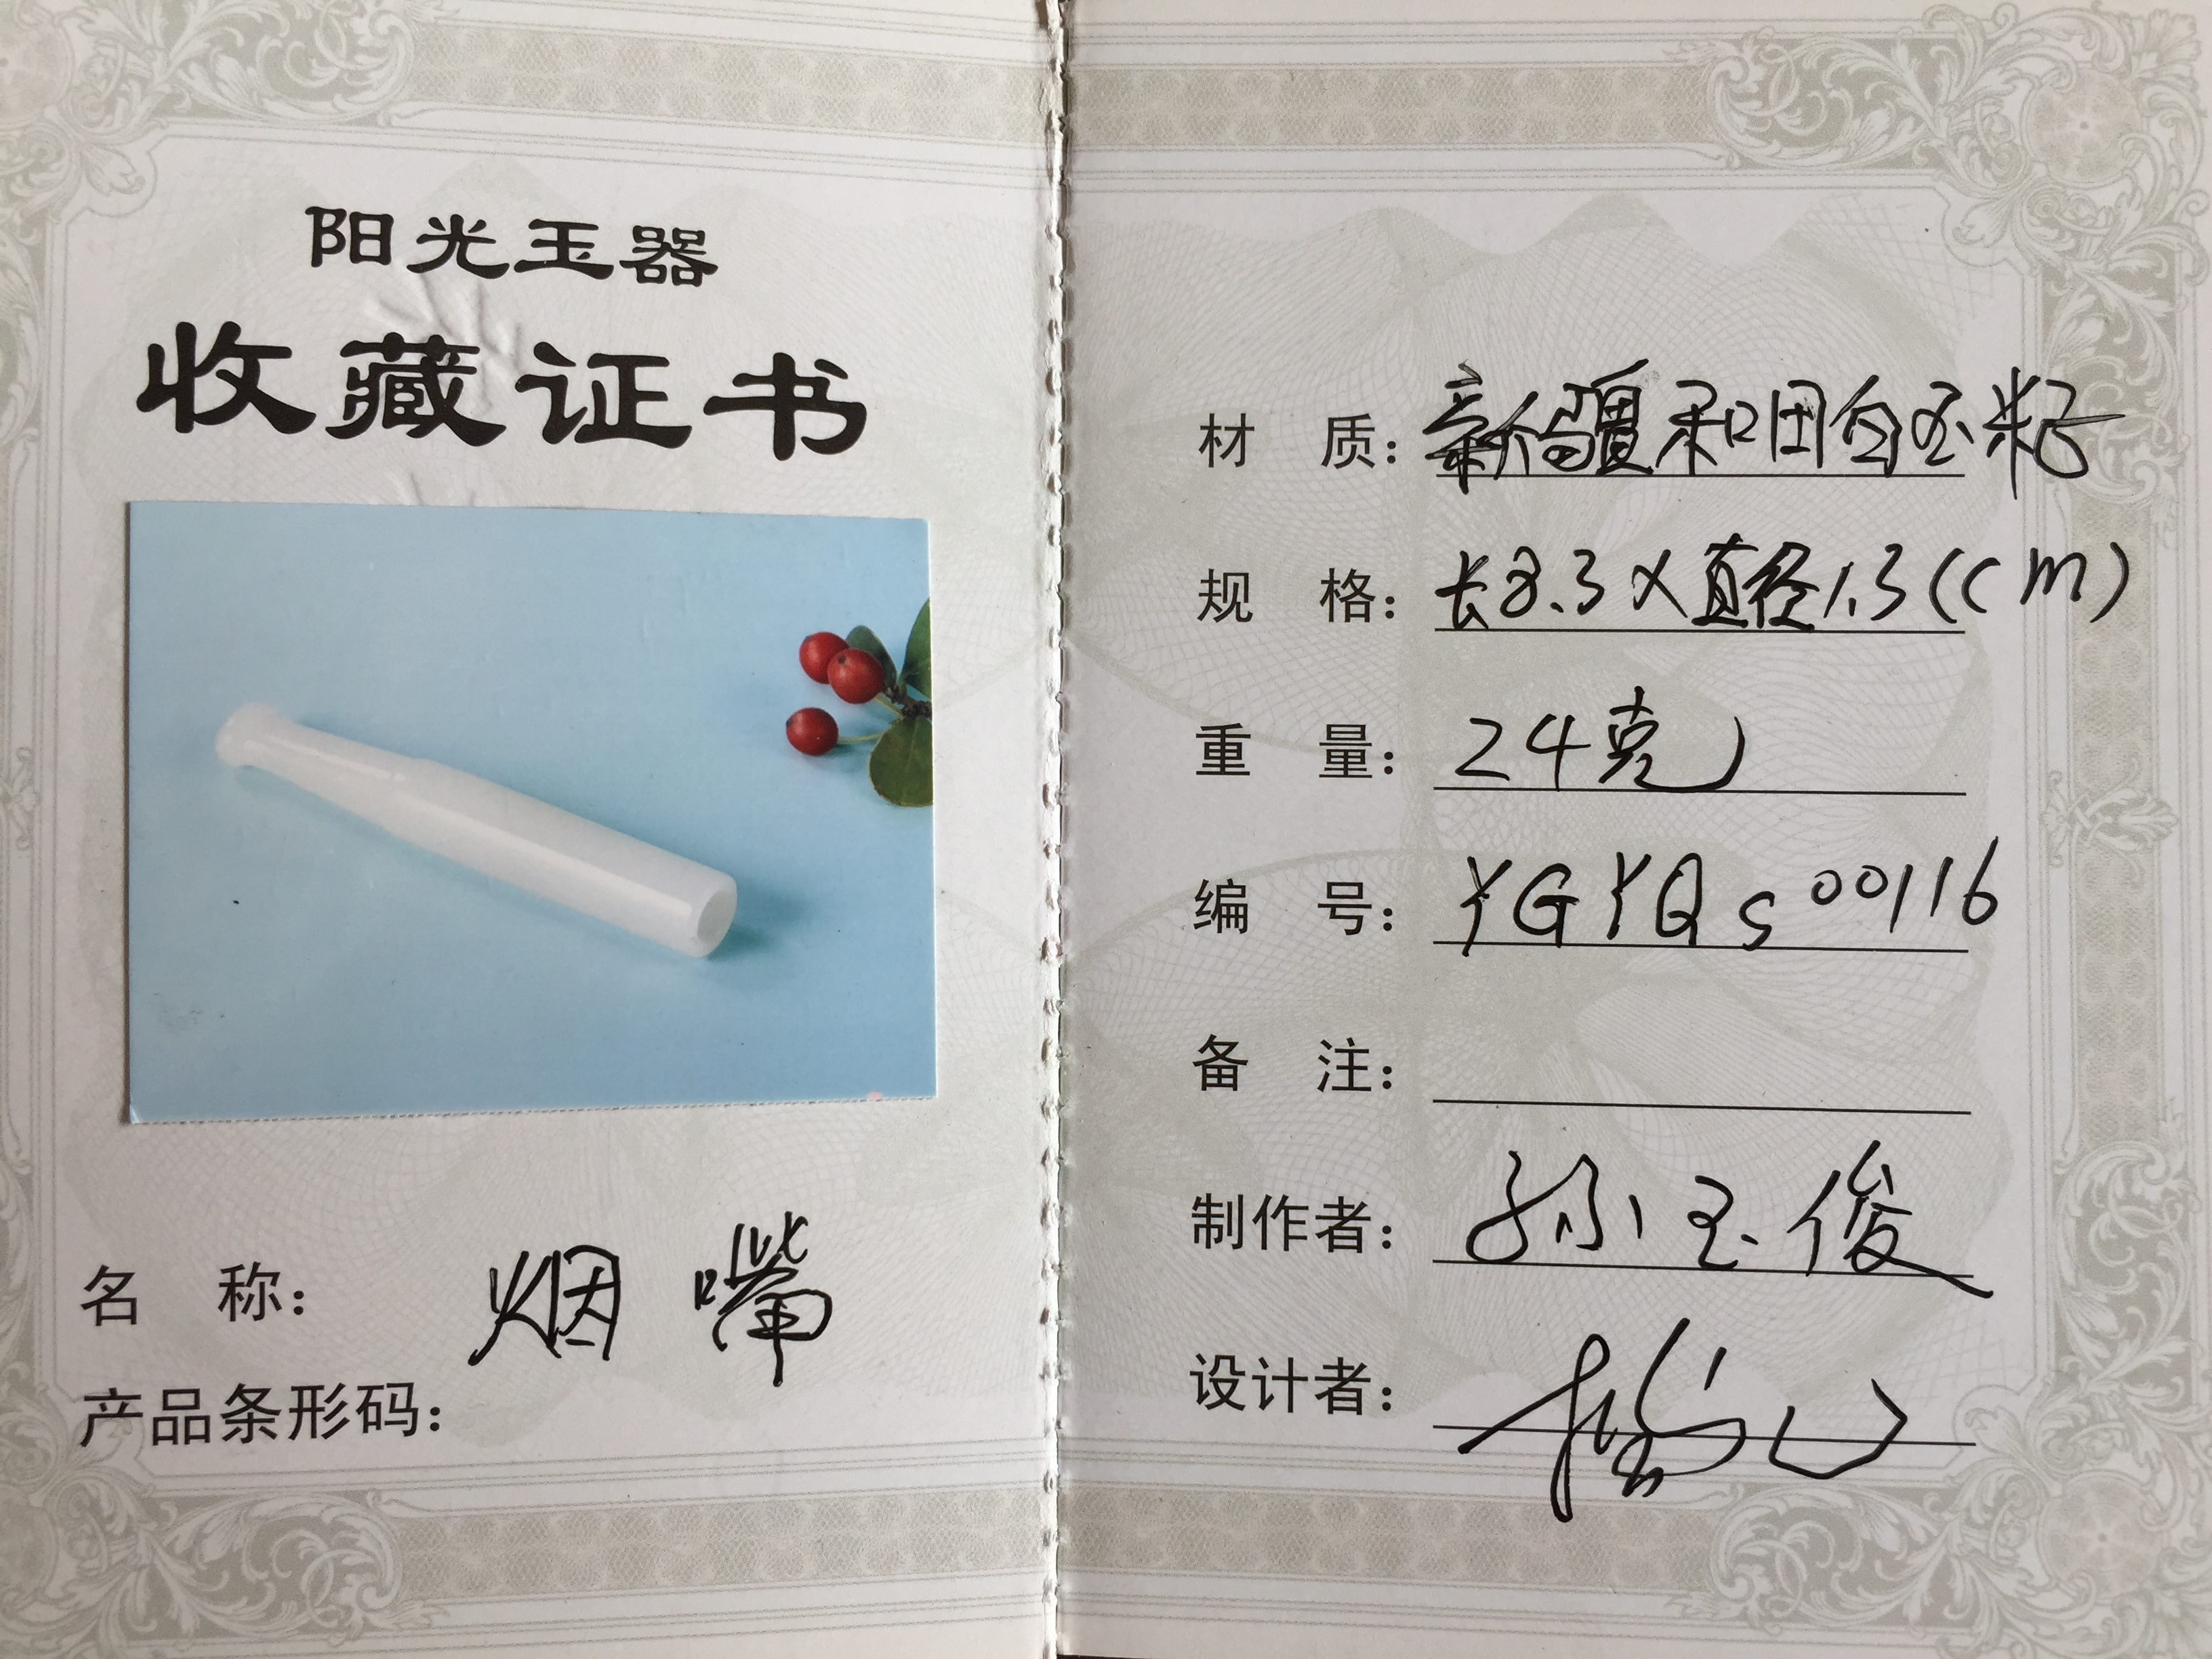 阳光玉器
收藏证书
名 称： 烟嘴
产品条形码：
材 质：新疆和田白玉籽
规 格：长8.3×直径1.3(cm)
重 量：24克
编 号：YGYQs00116
备 注：
制作者：孙玉俊
设计者：